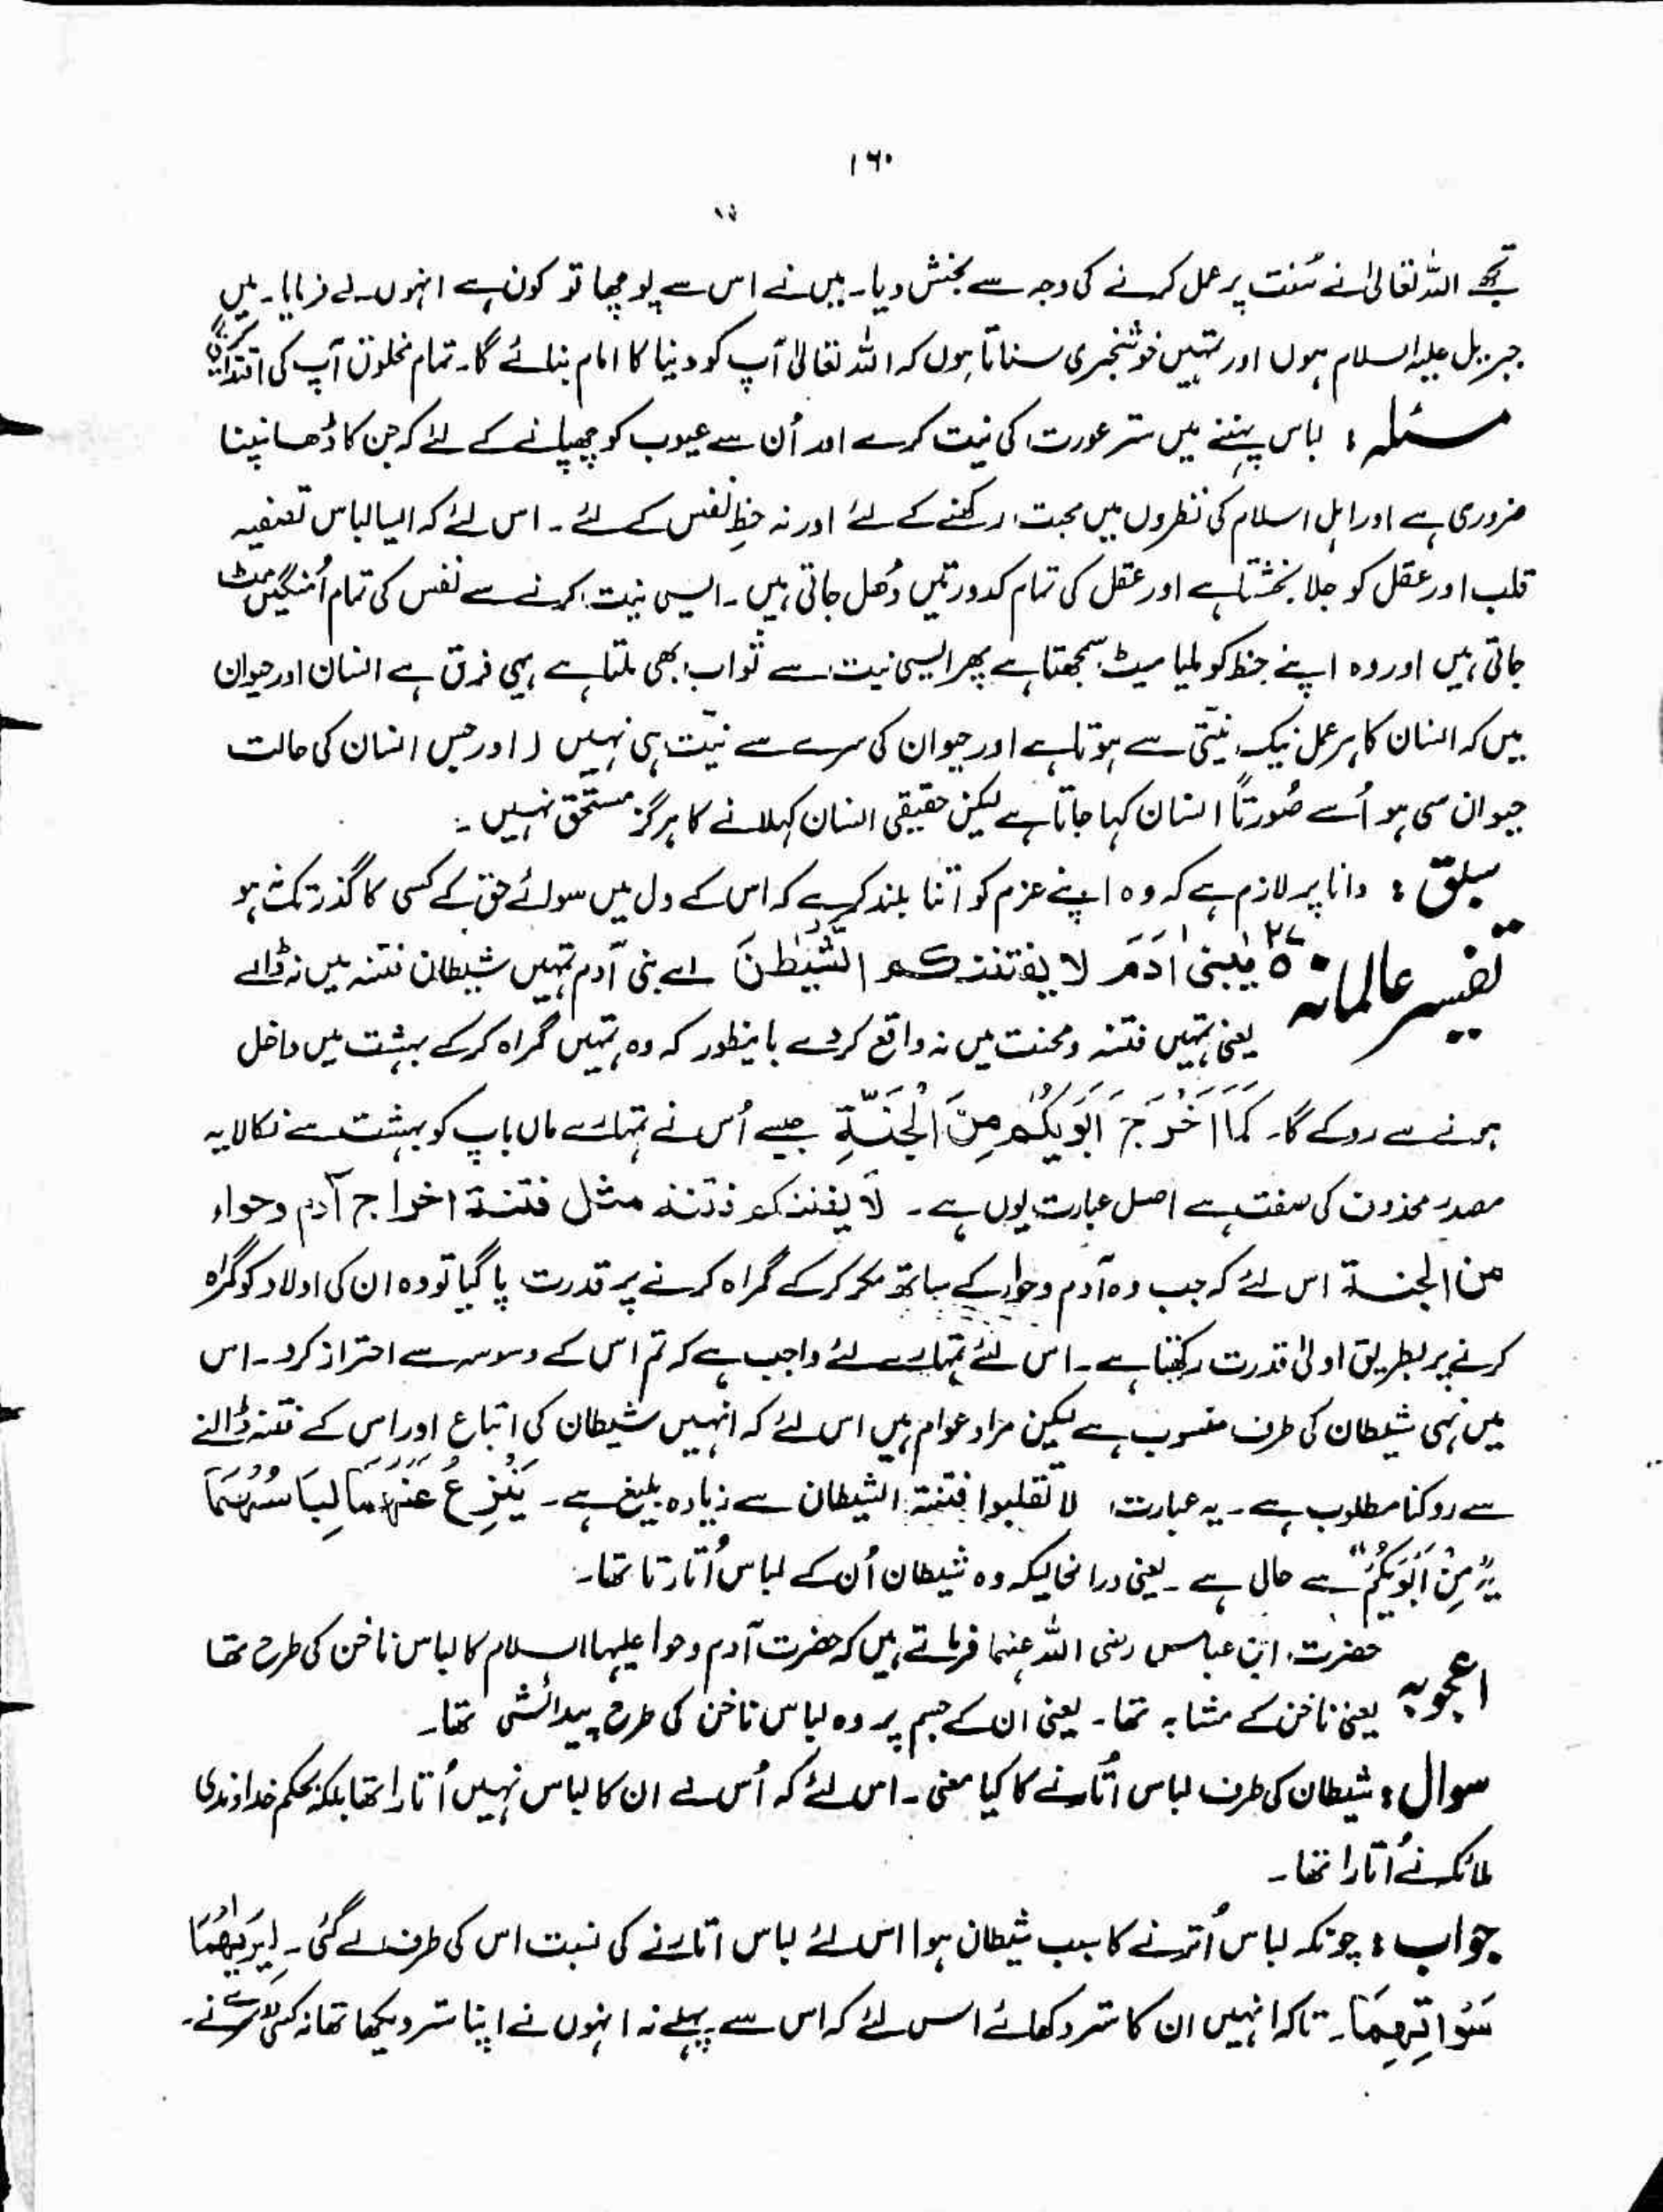 ۱۶۰
تجھے اللہ تعالیٰ نے سُنت پر عمل کرنے کی وجہ سے بخش دیا۔ میں نے اس سے پوچھا تو کون ہے انہوں نے فرمایا۔ میں
جبریل علیہ السلام ہوں اور تمہیں خوشخبری سناتا ہوں کہ اللہ تعالیٰ آپ کو دنیا کا امام بنائے گا۔ تمام مخلوق آپ کی اقتدا کریگی
مسئلہ : لباس پہننے میں ستر عورت کی نیت کرے اور اُن سے عیوب کو چھپانے کے لئے کہ جن کا ڈھانپنا
ضروری ہے اور اہل اسلام کی نظروں میں محبت رکھنے کے لئے اور نہ حظِ نفس کے لئے ۔ اس لئے کہ ایسا لباس تصفیہ
قلب اور عقل کو جلا بخشتا ہے اور عقل کی تمام کدورتیں دُھل جاتی ہیں ۔ ایسی نیت کرنے سے نفس کی تمام اُمنگیں مٹ
جاتی ہیں اور وہ اپنے حظ کو ملیا میٹ سمجھتا ہے پھر ایسی نیت سے ثواب بھی ملتا ہے یہی فرق ہے انسان اور حیوان
میں کہ انسان کا ہر عمل نیک نیتی سے ہوتا ہے اور حیوان کی سرے سے نیّت ہی نہیں ( اور جس انسان کی حالت
حیوان سی ہو اُسے صُورتاً انسان کہا جاتا ہے لیکن حقیقی انسان کہلانے کا ہرگز مستحق نہیں ۔
سبق : دانا پر لازم ہے کہ وہ اپنے عزم کو اتنا بلند کرے کہ اس کے دل میں سوائے حق کے کسی کا گذر تک نہ ہو
تفسیر عالمانہ ۲۷ يٰبَنِيْ اٰدَمَ لا يفتننكم الشَّيْطٰنَ اے بنی آدم تمہیں شیطان فتنہ میں نہ ڈالے
یعنی تمہیں فتنہ و محنت میں نہ واقع کردے باینطور کہ وہ تمہیں گمراہ کر کے بہشت میں داخل
ہونے سے روکے گا۔ كَمَآ اَخْرَجَ اَبَوَيْكُمْ مِنَ الْجَنَّةِ جیسے اُس نے تمہارے ماں باپ کو بہشت سے نکالا یہ
مصدر محذوف کی صفت ہے اصل عبارت یوں ہے ۔ لا يفتننكم فتنة مثل فتنة اخراج آدم وحواء
من الجنة اس لئے کہ جب وہ آدم و حوا کے ساتھ مکر کر کے گمراہ کرنے پر قدرت پا گیا تو وہ ان کی اولاد کو گمراہ
کرنے پر بطریق اولیٰ قدرت رکھتا ہے ۔ اس لئے تمہارے لئے واجب ہے کہ تم اس کے وسوسہ سے احتراز کرو۔ اس
میں نہی شیطان کی طرف منسوب ہے لیکن مراد عوام ہیں اس لئے کہ انہیں شیطان کی اتباع اور اس کے فتنہ ڈالنے
سے روکنا مطلوب ہے ۔ یہ عبارت لا تقلبوا فتنة الشیطان سے زیادہ بلیغ ہے ۔ يَنْزِعُ عَنْهُمَا لِبَاسَهُمَا
یہ مِنْ اَبَوَيْكُمْ سے حال ہے ۔ یعنی درانحالیکہ وہ شیطان اُن کے لباس اُتارتا تھا ۔
اعجوبہ حضرت ابن عباس رضی اللہ عنہما فرماتے ہیں کہ حضرت آدم و حوا علیہما السلام کا لباس ناخن کی طرح تھا
یعنی ناخن کے مشابہ تھا ۔ یعنی ان کے جسم پر وہ لباس ناخن کی طرح پیدائشی تھا ۔
سوال : شیطان کی طرف لباس اُتارنے کا کیا معنی ۔ اس لئے کہ اُس نے ان کا لباس نہیں اُتارا تھا بلکہ بحکم خداوندی
ملائکہ نے اُتارا تھا ۔
جواب : چونکہ لباس اُترنے کا سبب شیطان ہوا اس لئے لباس اتارنے کی نسبت اس کی طرف کی گئی ۔ لِيُرِيَهُمَا
سَوْاٰتِهِمَا۔ تاکہ انہیں ان کا ستر دکھائے اس لئے کہ اس سے پہلے نہ انہوں نے اپنا ستر دیکھا تھا نہ کسی دوسرے نے ۔